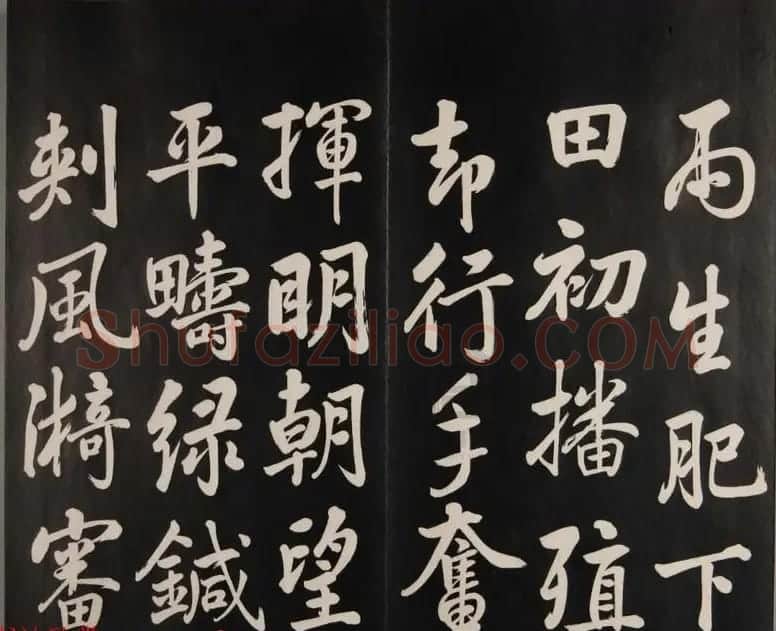 雨生肥下
田初播殖
却行手奮
揮明朝望
平疇緑鍼
刺風漪審
Shufaziliao.COM